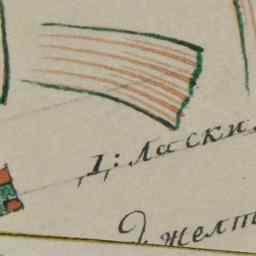 1: ласки
желт